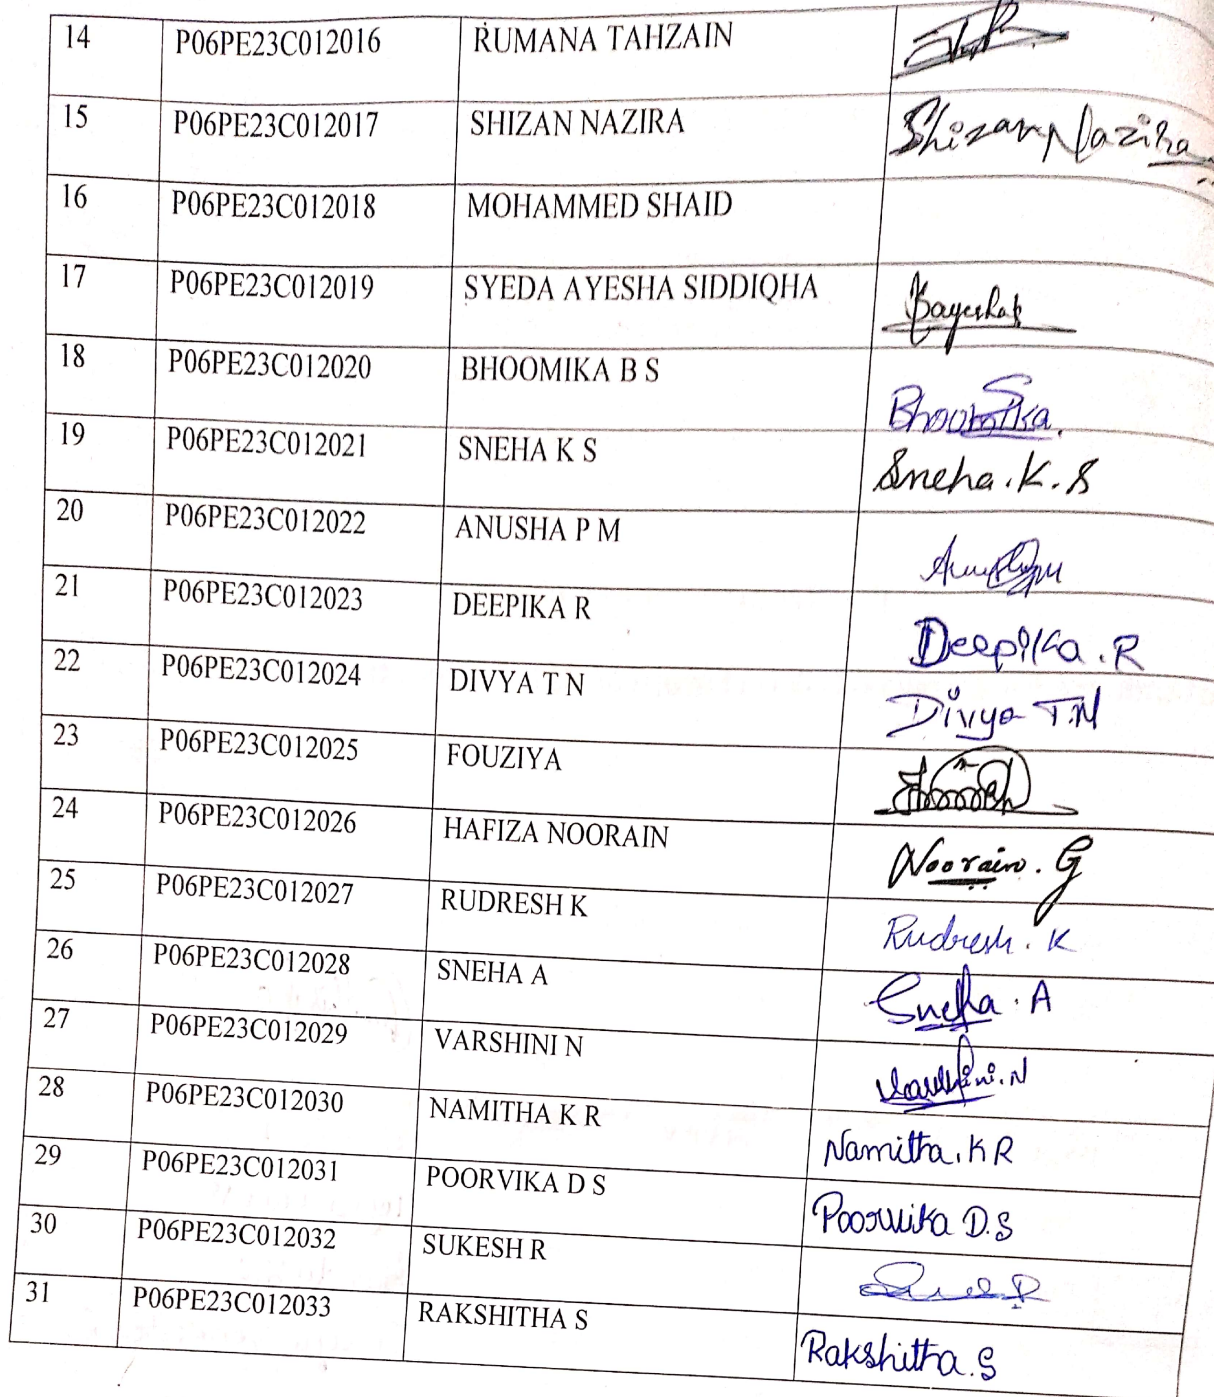 14 P06PE23C012016 RUMANA TAHZAIN
15 P06PE23C012017 SHIZAN NAZIRA Shizan Nazira
16 P06PE23C012018 MOHAMMED SHAID
17 P06PE23C012019 SYEDA AYESHA SIDDIQHA
18 P06PE23C012020 BHOOMIKA B S Bhoomika.
19 P06PE23C012021 SNEHA K S Sneha.K.S
20 P06PE23C012022 ANUSHA P M
21 P06PE23C012023 DEEPIKA R Deepika.R
22 P06PE23C012024 DIVYA T N Divya T.N
23 P06PE23C012025 FOUZIYA
24 P06PE23C012026 HAFIZA NOORAIN Noorain. G
25 P06PE23C012027 RUDRESH K Rudresh. K
26 P06PE23C012028 SNEHA A Sneha. A
27 P06PE23C012029 VARSHINI N Varshini.N
28 P06PE23C012030 NAMITHA K R Namitha.K R
29 P06PE23C012031 POORVIKA D S Poorvika D.S
30 P06PE23C012032 SUKESH R
31 P06PE23C012033 RAKSHITHA S Rakshitha.S